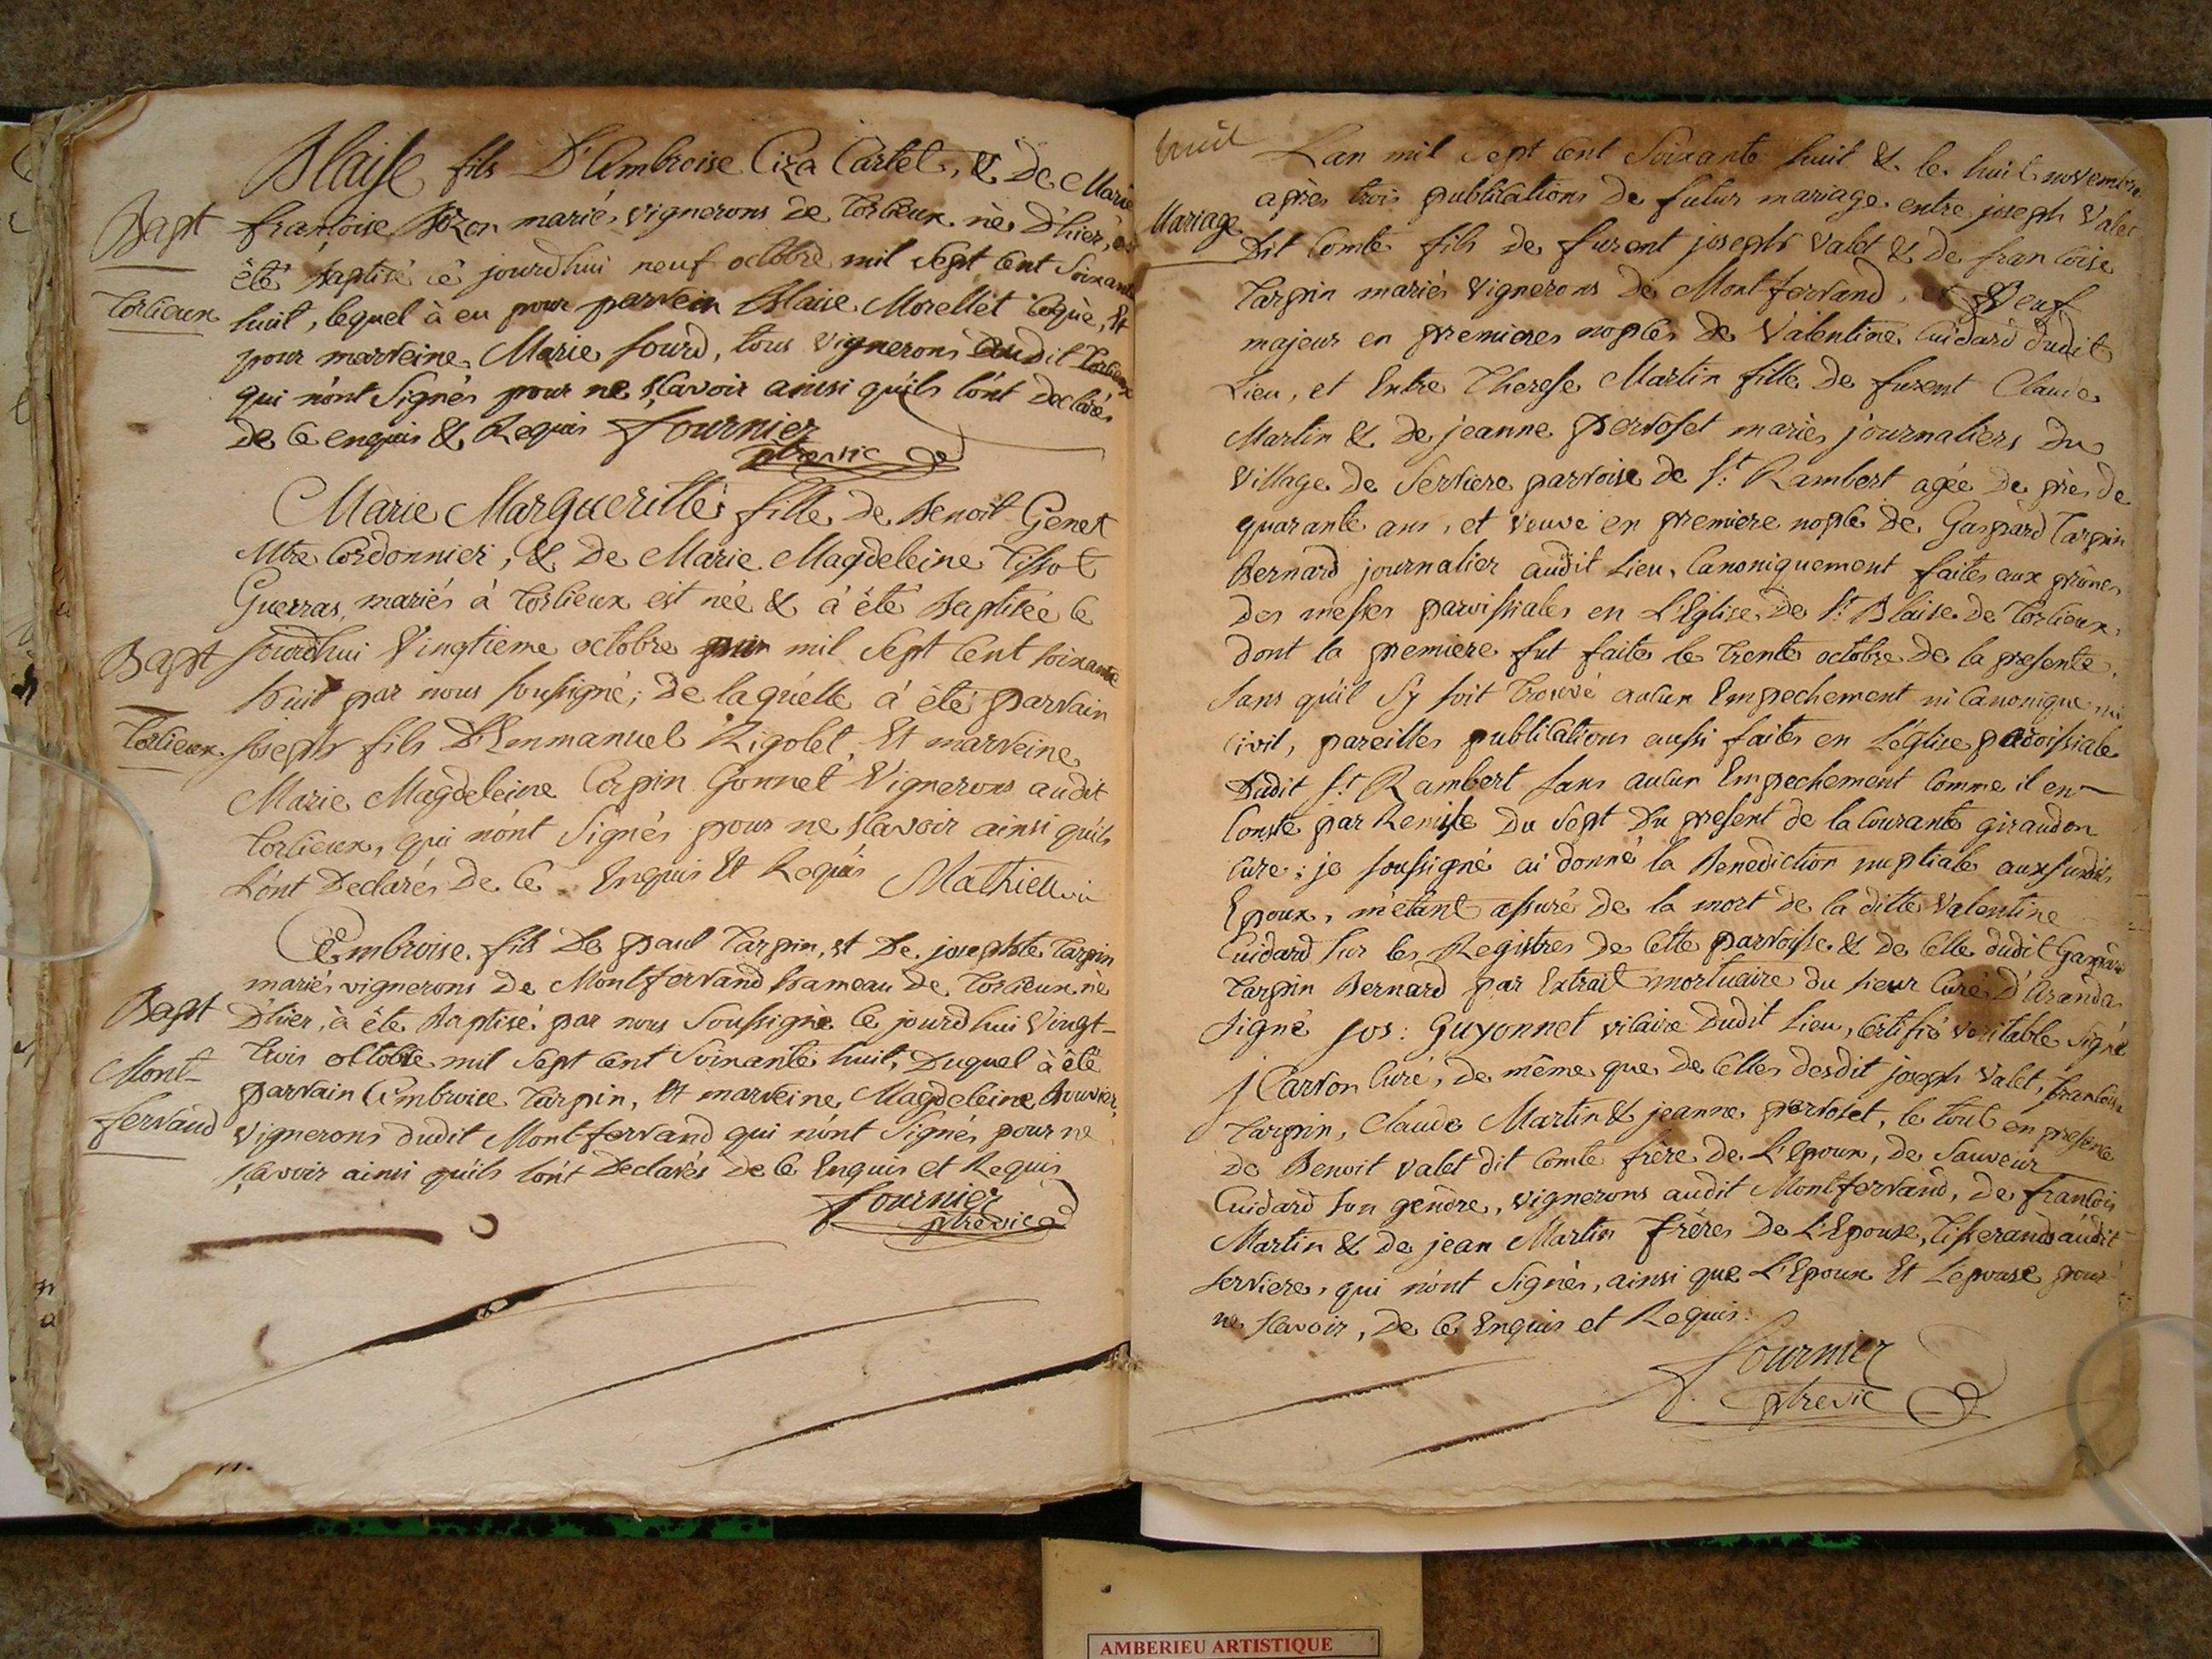 Blaise fils D'Ambroise Ciza Cartel, & De Marie
Bapt françoise Bozon mariés vignerons de Torcieux né D'hier, a
été Baptisé cê jourdhui neuf octobre mil Sept Cent Soixante
Torcieux huit, lequel à eu pour parrein Blaise Morellet Coquè, Et
pour marreine Marie Sourd, tous vignerons dudit Torcieux
qui n'ont Signés pour ne sçavoir ainsi qu'ils l'ont declarés
de ce enquis & Requis Fournier
ptre vic
Marie Margueritte fille de Benoit Genet
Mtre Cordonnier, & De Marie Magdeleine Tissot
Guerras, mariés à Torcieux est née & à été Baptisée ce
Bapt jourdhui Vingtieme octobre mil Sept Cent soixante
huit par nous soussigné; de laquelle à été parrain
Torcieux Joseph fils D'Emmanuel Rigolet, Et marreine
Marie Magdeleine Carpin Gonnet Vignerons audit
Torcieux, qui n'ont Signés pour ne sçavoir ainsi qu'ils
L'ont Declarés De Cê Enquis Et Requis Mathieu
Ambroise fils De paul Tarpin, et De josephte Tarpin
mariés vignerons de Montferrand hameau de Torcieux né
Bapt D'hier, à été Baptisé par nous Soussigné ce jourdhui Vingt-
trois octobre mil Sept Cent Soixante huit, Duquel à été
Mont- parrain Ambroise Tarpin, Et marreine Magdeleine Bouvier,
ferrand vignerons dudit Montferrand qui n'ont Signés pour ne
sçavoir ainsi qu'ils l'ont Declarés de ce Enquis et Requis
Fournier
ptre vic
huit
Lan mil Sept Cent Soixante huit & le huit novembre
après trois publications de futur mariage entre joseph Valet
Mariage Dit Comte fils de furent joseph Valet & de francoise
Tarpin mariés Vignerons de Montferrand, et Veuf
majeur en premieres nopces de Valentine Cuidard dudit
Lieu, et Entre Therese Martin fille de furent Claude
Martin & de jeanne perroset mariés journaliers du
Village de Serriere parroise de St Rambert agée de près de
quarante ans, et veuve en premiere nopce de Gaspard Tarpin
Bernard journalier audit Lieu, Canoniquement faites aux prônes
des messes paroissiales en L'Eglise de St Blaise de Torcieux,
dont la premiere fut faite le trente octobre de la presente,
sans qu'il Sy soit trouvé aucun Empechement ni Canonique ni
Civil, pareilles publications aussi faites en L'église paroissiale
Dudit St Rambert sans aucun Empechement Comme il en
Conste par Remisse Du Sept Du present de la Courante giraudon
Cure; je soussigné ai donné la Benediction nuptiale aux susdits
Epoux, m'étant assuré de la mort de la ditte Valentine
Cuidard sur les Registres de Cette parroisse & de Celle dudit Gaspard
Tarpin Bernard par Extrait mortuaire du sieur Curé D'Aranda
signé jos: Guyonnet vicaire Dudit Lieu, Certifié veritable Signé
J Carron Curé, de même que de Celles desdit joseph Valet, francoise
Tarpin, Claude Martin & jeanne perroset, le tout en presence
de Benoit valet dit Comte frère de L'Epoux, de Sauveur
Cuidard son gendre, vignerons audit Montferrand, de francois
Martin & de jean Martin frères De L'Epouse, tisserands audit
Serriere, qui n'ont Signés, ainsi que L'Epoux Et L'epouse pour
ne sçavoir, De Ce Enquis et Requis.
Fournier
ptre vic
AMBERIEU ARTISTIQUE